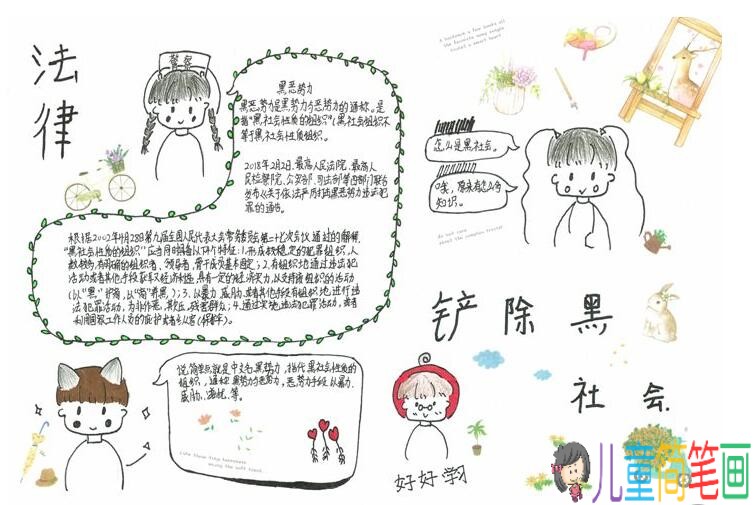 法律
警察
黑恶势力
黑恶势力是黑势力与恶势力的通称。是
指“黑社会性质的组织”;黑社会组织不
等于黑社会性质组织。
2018年2月2日,最高人民法院、最高人
民检察院、公安部、司法部等四部门联合
发布《关于依法严厉打击黑恶势力违法犯
罪的通告。
根据2002年4月28日第九届全国人民代表大会常务委员会第二十七次会议通过的解释,
“黑社会性质的组织”应当同时具备以下特征:1.形成较稳定的犯罪组织,人
数较多,有明确的组织者、领导者,骨干成员基本固定;2.有组织地通过违法犯
活动或者其他手段获取经济利益,具有一定的经济实力,以支持该组织的活动
(以“黑”护商,以“商”养黑);3.以暴力、威胁或者其他手段有组织地进行违
法犯罪活动,为非作恶,欺压、残害群众;4.通过实施违法犯罪活动,或者
利用国家工作人员的庇护或者
A bedroom a few books all
the favorite song single
约定
怎么是黑社会。
知识。
do not care
about the complex frontier
铲除黑
社会.
说简单点就是中文名黑势力,指代黑社会性质的
组织,通称黑势力与恶势力,恶势力手段以暴力、
威胁、滋扰、等。
Like these tiny happiness
along the soft travel
好好学习
儿童简笔画